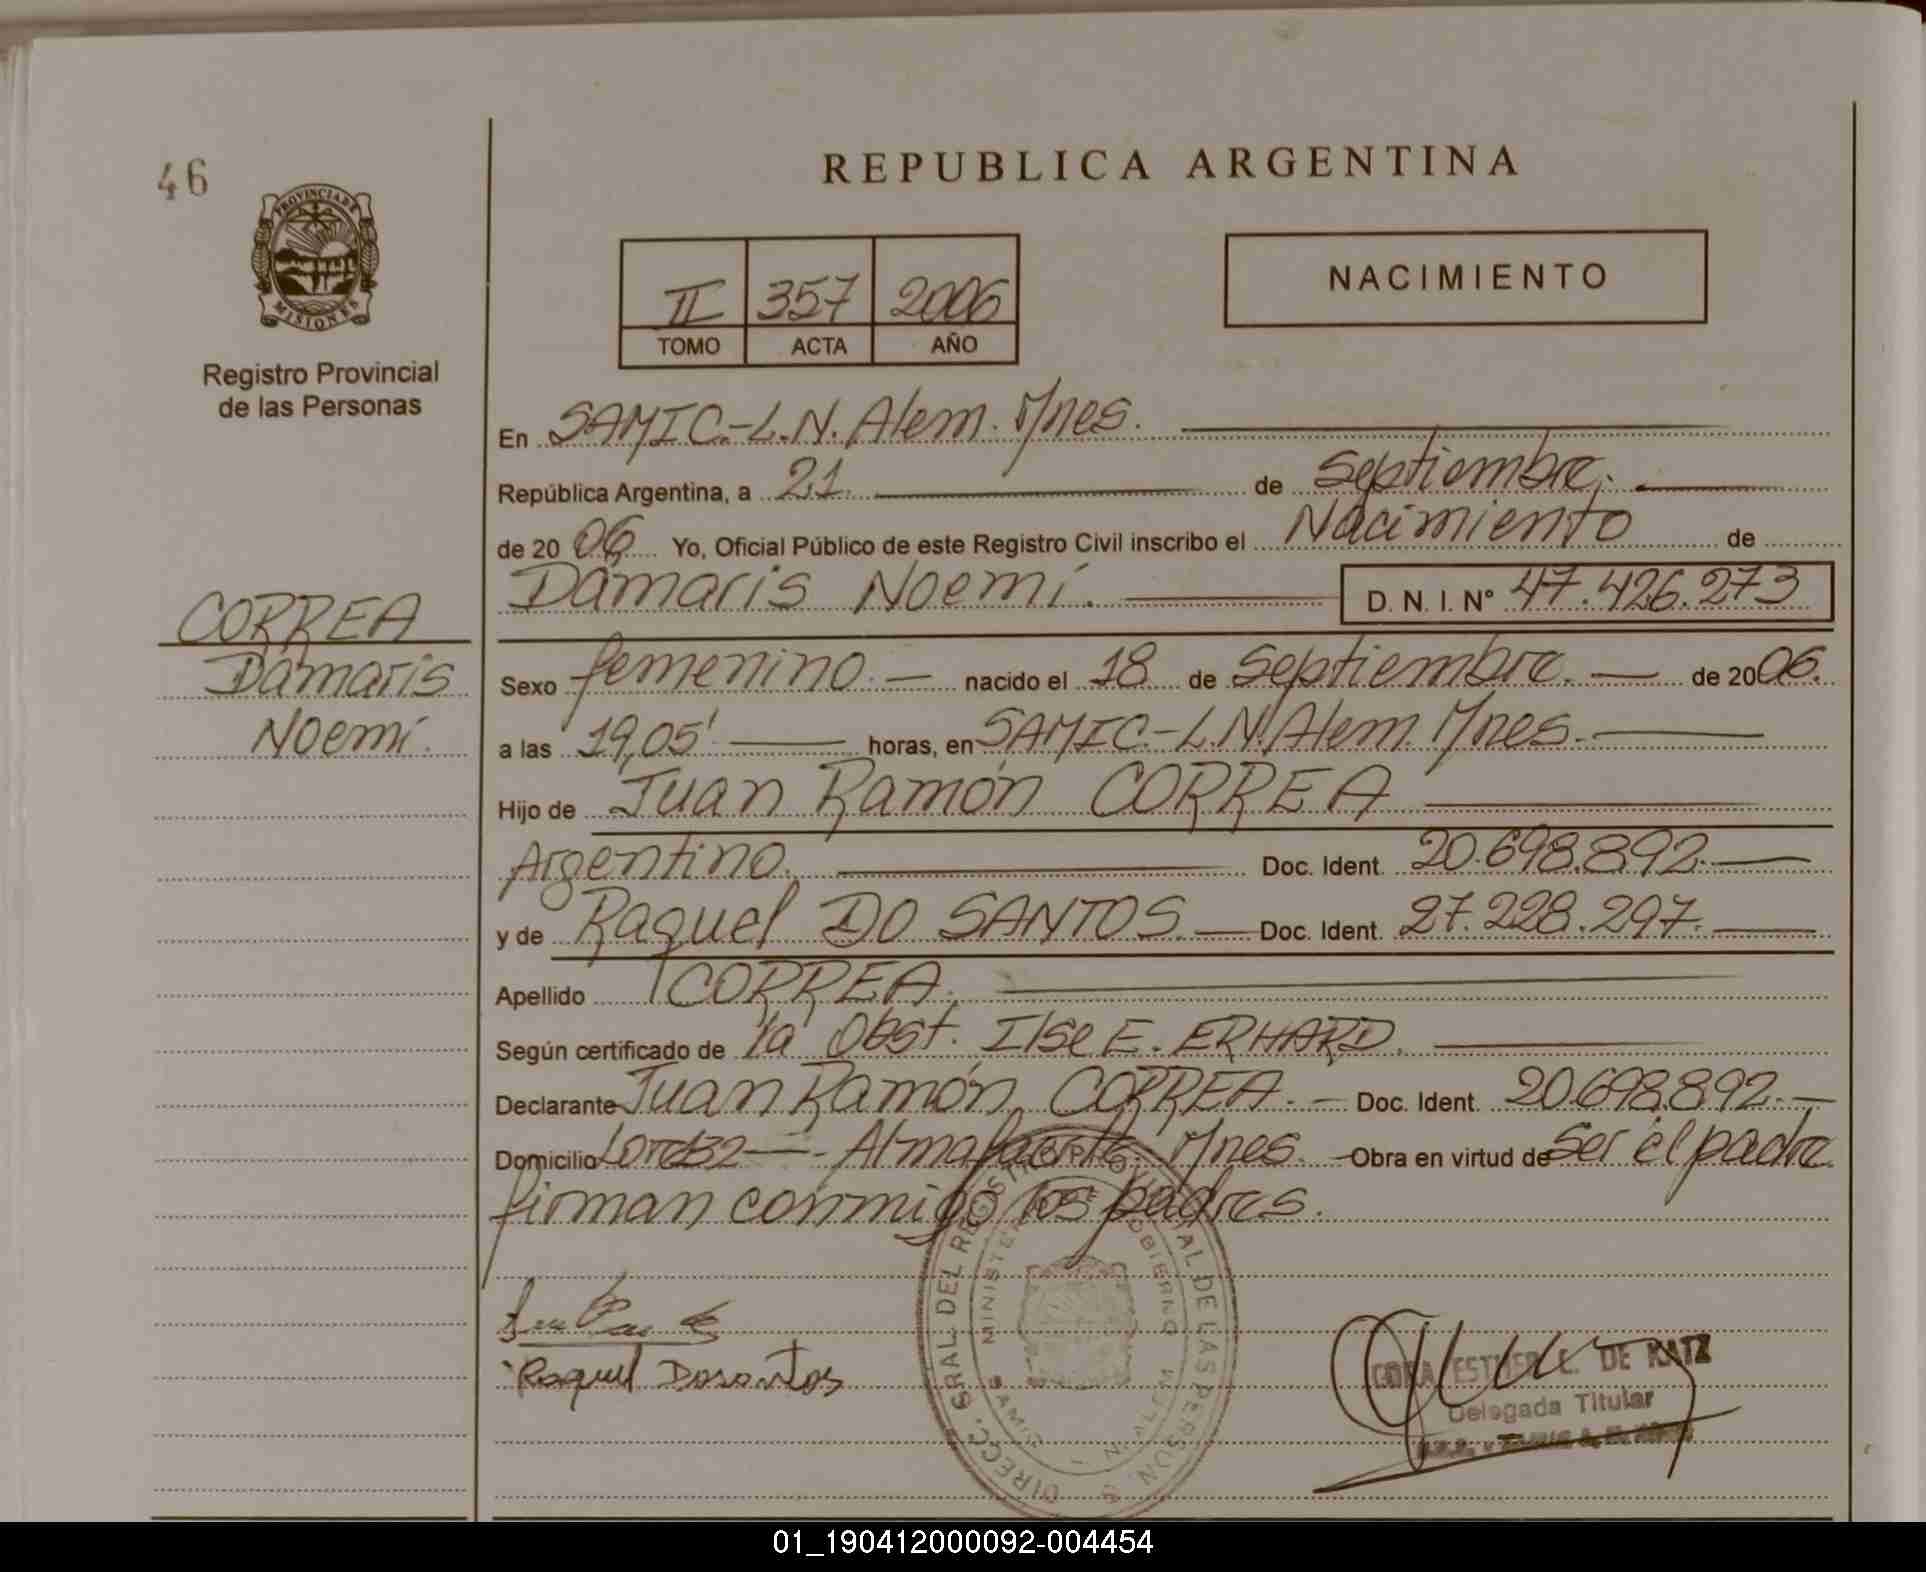 46
REPUBLICA ARGENTINA
PROVINCIA DE
MISIONES
Registro Provincial
de las Personas
II 357 2006
TOMO ACTA AÑO
NACIMIENTO
En SAMIC.-L.N. Alem. Mnes.
República Argentina, a 21. de Septiembre.
de 20 06 Yo, Oficial Público de este Registro Civil inscribo el Nacimiento de
Dámaris Noemí. D. N. I. N° 47.426.273
CORREA
Dámaris
Noemí.
Sexo femenino. nacido el 18 de Septiembre. de 2006.
a las 19,05' horas, en SAMIC.-L.N. Alem. Mnes.
Hijo de Juan Ramón CORREA
Argentino. Doc. Ident. 20.698.892.
y de Raquel DO SANTOS. Doc. Ident. 27.228.297.
Apellido CORREA.
Según certificado de la Obst. Ilse E. ERHARD.
Declarante Juan Ramón CORREA. Doc. Ident. 20.698.892.
Domicilio Almafuerte. Mnes. Obra en virtud de ser el padre
firman conmigo los padres.
Raquel Dosantos
DIRECC. GRAL DEL REGISTRO PROVINCIAL DE LAS PERSONAS
MINISTERIO DE GOBIERNO
SAMIC - L. N. ALEM
CORA ESTHER L. DE KATZ
Delegada Titular
01_190412000092-004454